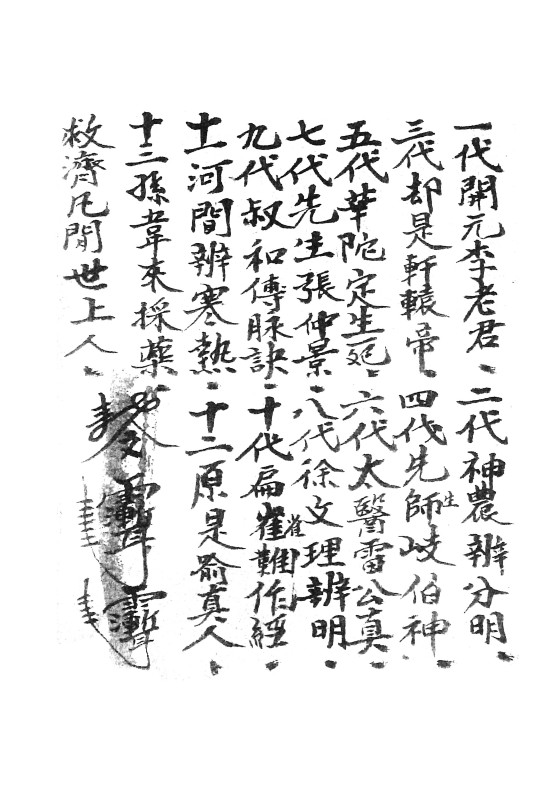 一代開元李老君 二代神農辨分明
三代却是軒轅帝 四代先師歧伯神
五代華陀定生死 六代太醫雷公真
七代先生張仲景 八代徐文理辨明
九代叔和傳脉訣 十代扁雀難作經
十一河間辨寒熱 十二原是俞真人
十三孫韋來採藥
救濟凡間世上人